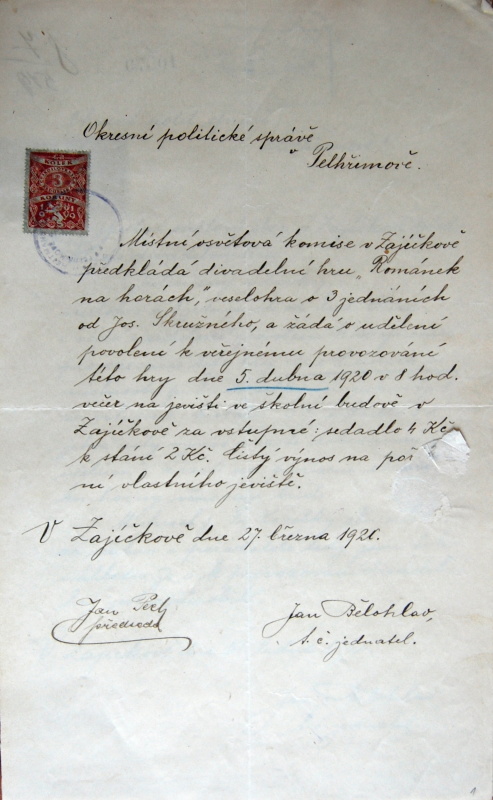 Okresní politické správě
v Pelhřimově.
Místní osvětová komise v Zajíčkově
předkládá divadelní hru „Románek
na horách," veselohra o 3 jednáních
od Jos. Skružného, a žádá o udělení
povolení k veřejnému provozování
této hry dne 5. dubna 1920 v 8 hod.
večer na jevišti ve školní budově v
Zajíčkově za vstupné: sedadlo 4 Kč
k stání 2 Kč. Čistý výnos na poř
ní vlastního jeviště.
V Zajíčkově dne 27. března 1920.
Jan Pech
předseda
Jan Bělohlav,
t. č. jednatel.
KOLEK
3
KORUNY